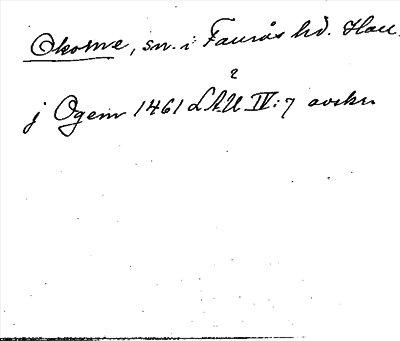 Okome, sn. i Faurås hd. Hall.
j Ogem 1461 LAU IV: 7 avskr.
2